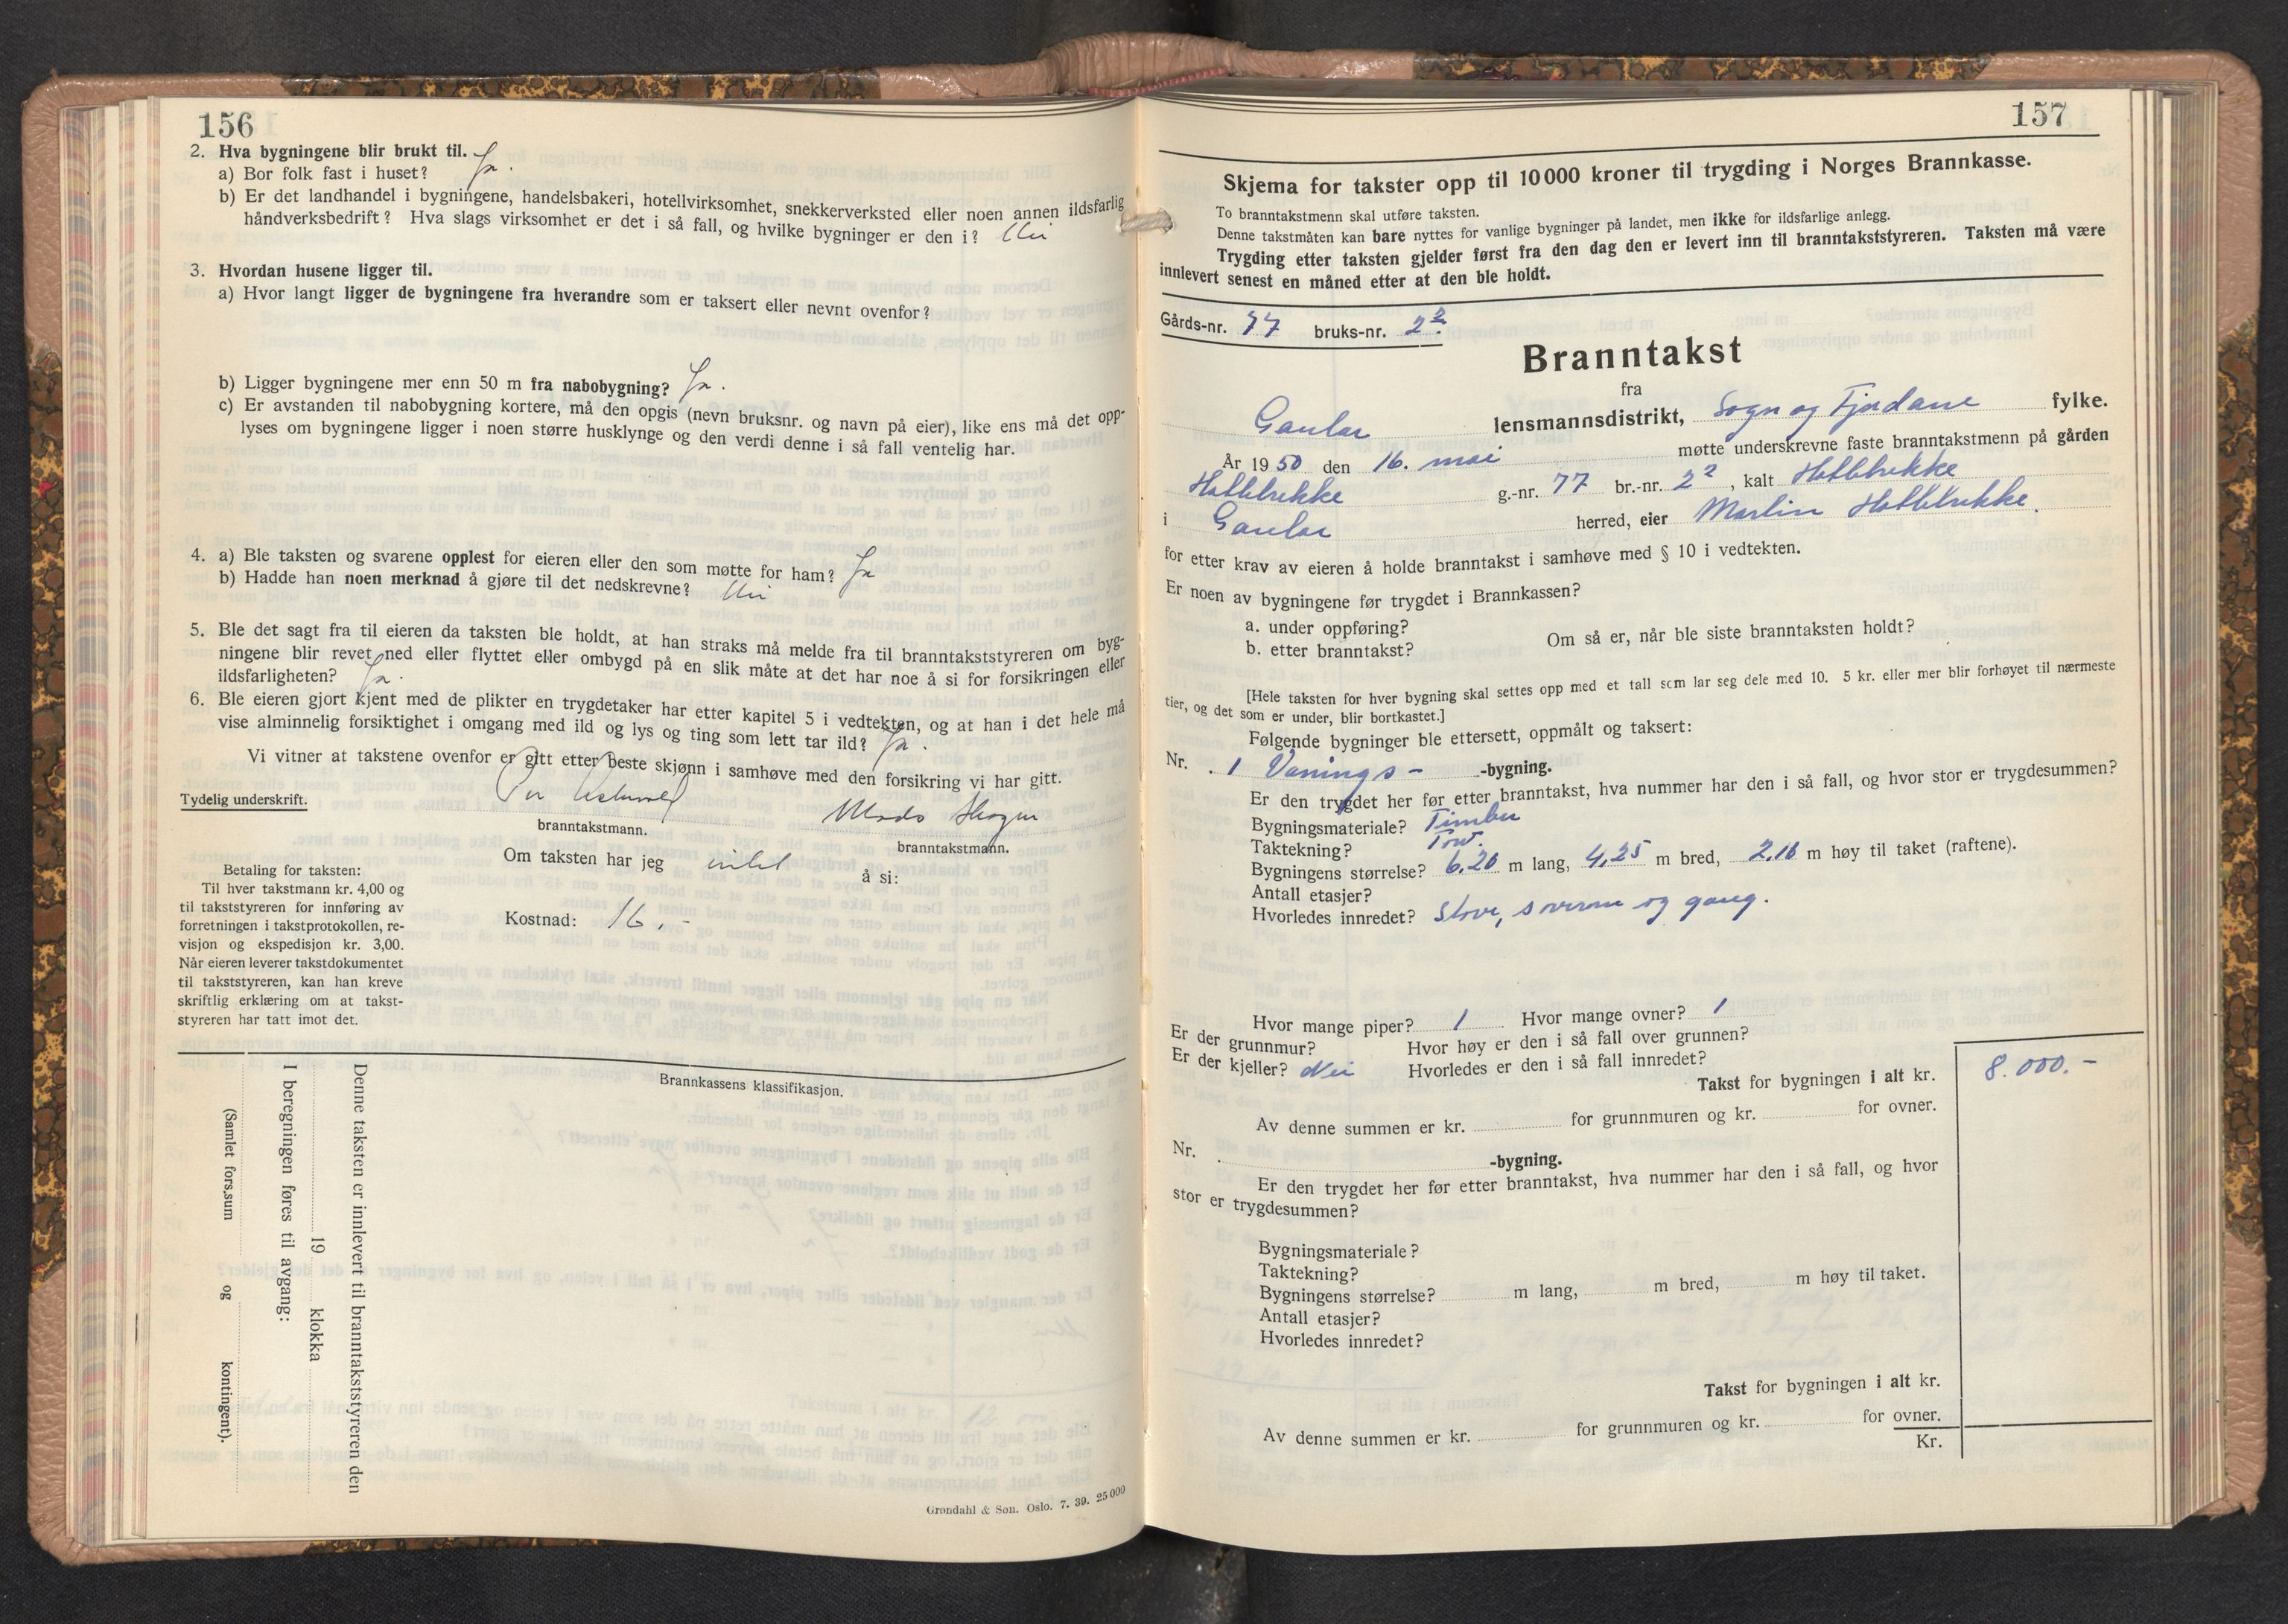 156
2. Hva bygningene blir brukt til.
a) Bor folk fast i huset? Ja.
b) Er det landhandel i bygningene, handelsbakeri, hotellvirksomhet, snekkerverksted eller noen annen ildsfarlig
håndverksbedrift? Hva slags virksomhet er det i så fall, og hvilke bygninger er den i? Nei
3. Hvordan husene ligger til.
a) Hvor langt ligger de bygningene fra hverandre som er taksert eller nevnt ovenfor?
b) Ligger bygningene mer enn 50 m fra nabobygning? Ja.
c) Er avstanden til nabobygning kortere, må den opgis (nevn bruksnr. og navn på eier), like ens må det opp-
lyses om bygningene ligger i noen større husklynge og den verdi denne i så fall ventelig har.
4. a) Ble taksten og svarene opplest for eieren eller den som møtte for ham? Ja
b) Hadde han noen merknad å gjøre til det nedskrevne? Nei
5. Ble det sagt fra til eieren da taksten ble holdt, at han straks må melde fra til branntakststyreren om byg-
ningene blir revet ned eller flyttet eller ombygd på en slik måte at det har noe å si for forsikringen eller
ildsfarligheten? Ja.
6. Ble eieren gjort kjent med de plikter en trygdetaker har etter kapitel 5 i vedtekten, og at han i det hele må
vise alminnelig forsiktighet i omgang med ild og lys og ting som lett tar ild? Ja.
Vi vitner at takstene ovenfor er gitt etter beste skjønn i samhøve med den forsikring vi har gitt.
Tydelig underskrift.
branntakstmann.
branntakstmann.
Om taksten har jeg intet å si:
Kostnad: 16,-
Betaling for taksten:
Til hver takstmann kr. 4,00 og
til takststyreren for innføring av
forretningen i takstprotokollen, re-
visjon og ekspedisjon kr. 3,00.
Når eieren leverer takstdokumentet
til takststyreren, kan han kreve
skriftlig erklæring om at takst-
styreren har tatt imot det.
Brannkassens klassifikasjon.
Denne taksten er innlevert til branntakststyreren den
19 klokka
I beregningen føres til avgang:
(Samlet fors.sum og kontingent).
Grøndahl & Søn. Oslo. 7. 39. 25 000
157
Skjema for takster opp til 10 000 kroner til trygding i Norges Brannkasse.
To branntakstmenn skal utføre taksten.
Denne takstmåten kan bare nyttes for vanlige bygninger på landet, men ikke for ildsfarlige anlegg.
Trygding etter taksten gjelder først fra den dag den er levert inn til branntakststyreren. Taksten må være
innlevert senest en måned etter at den ble holdt.
Gårds-nr. 77 bruks-nr. 2²
Branntakst
fra
Gaular lensmannsdistrikt, Sogn og Fjordane fylke.
År 1950 den 16. mai møtte underskrevne faste branntakstmenn på gården
Hatlebrekke g.-nr. 77 br.-nr. 2², kalt Hatlebrekke
i Gaular herred, eier Martin Hatlebrekke.
for etter krav av eieren å holde branntakst i samhøve med § 10 i vedtekten.
Er noen av bygningene før trygdet i Brannkassen?
a. under oppføring?
b. etter branntakst? Om så er, når ble siste branntaksten holdt?
[Hele taksten for hver bygning skal settes opp med et tall som lar seg dele med 10. 5 kr. eller mer blir forhøyet til nærmeste
tier, og det som er under, blir bortkastet.]
Følgende bygninger ble ettersett, oppmålt og taksert:
Nr. 1 Vånings- -bygning.
Er den trygdet her før etter branntakst, hva nummer har den i så fall, og hvor stor er trygdesummen?
Bygningsmateriale? Timber
Taktekning? Torv.
Bygningens størrelse? 6,20 m lang, 4,25 m bred, 2,10 m høy til taket (raftene).
Antall etasjer?
Hvorledes innredet? Stove, soverom og gang.
Hvor mange piper? 1 Hvor mange ovner? 1
Er der grunnmur? Hvor høy er den i så fall over grunnen?
Er der kjeller? Nei Hvorledes er den i så fall innredet?
Takst for bygningen i alt kr. 8.000.-
Av denne summen er kr. for grunnmuren og kr. for ovner.
Nr. -bygning.
Er den trygdet her før etter branntakst, hva nummer har den i så fall, og hvor
stor er trygdesummen?
Bygningsmateriale?
Taktekning?
Bygningens størrelse? m lang, m bred, m høy til taket.
Antall etasjer?
Hvorledes innredet?
Takst for bygningen i alt kr.
Av denne summen er kr. for grunnmuren og kr. for ovner.
Kr.